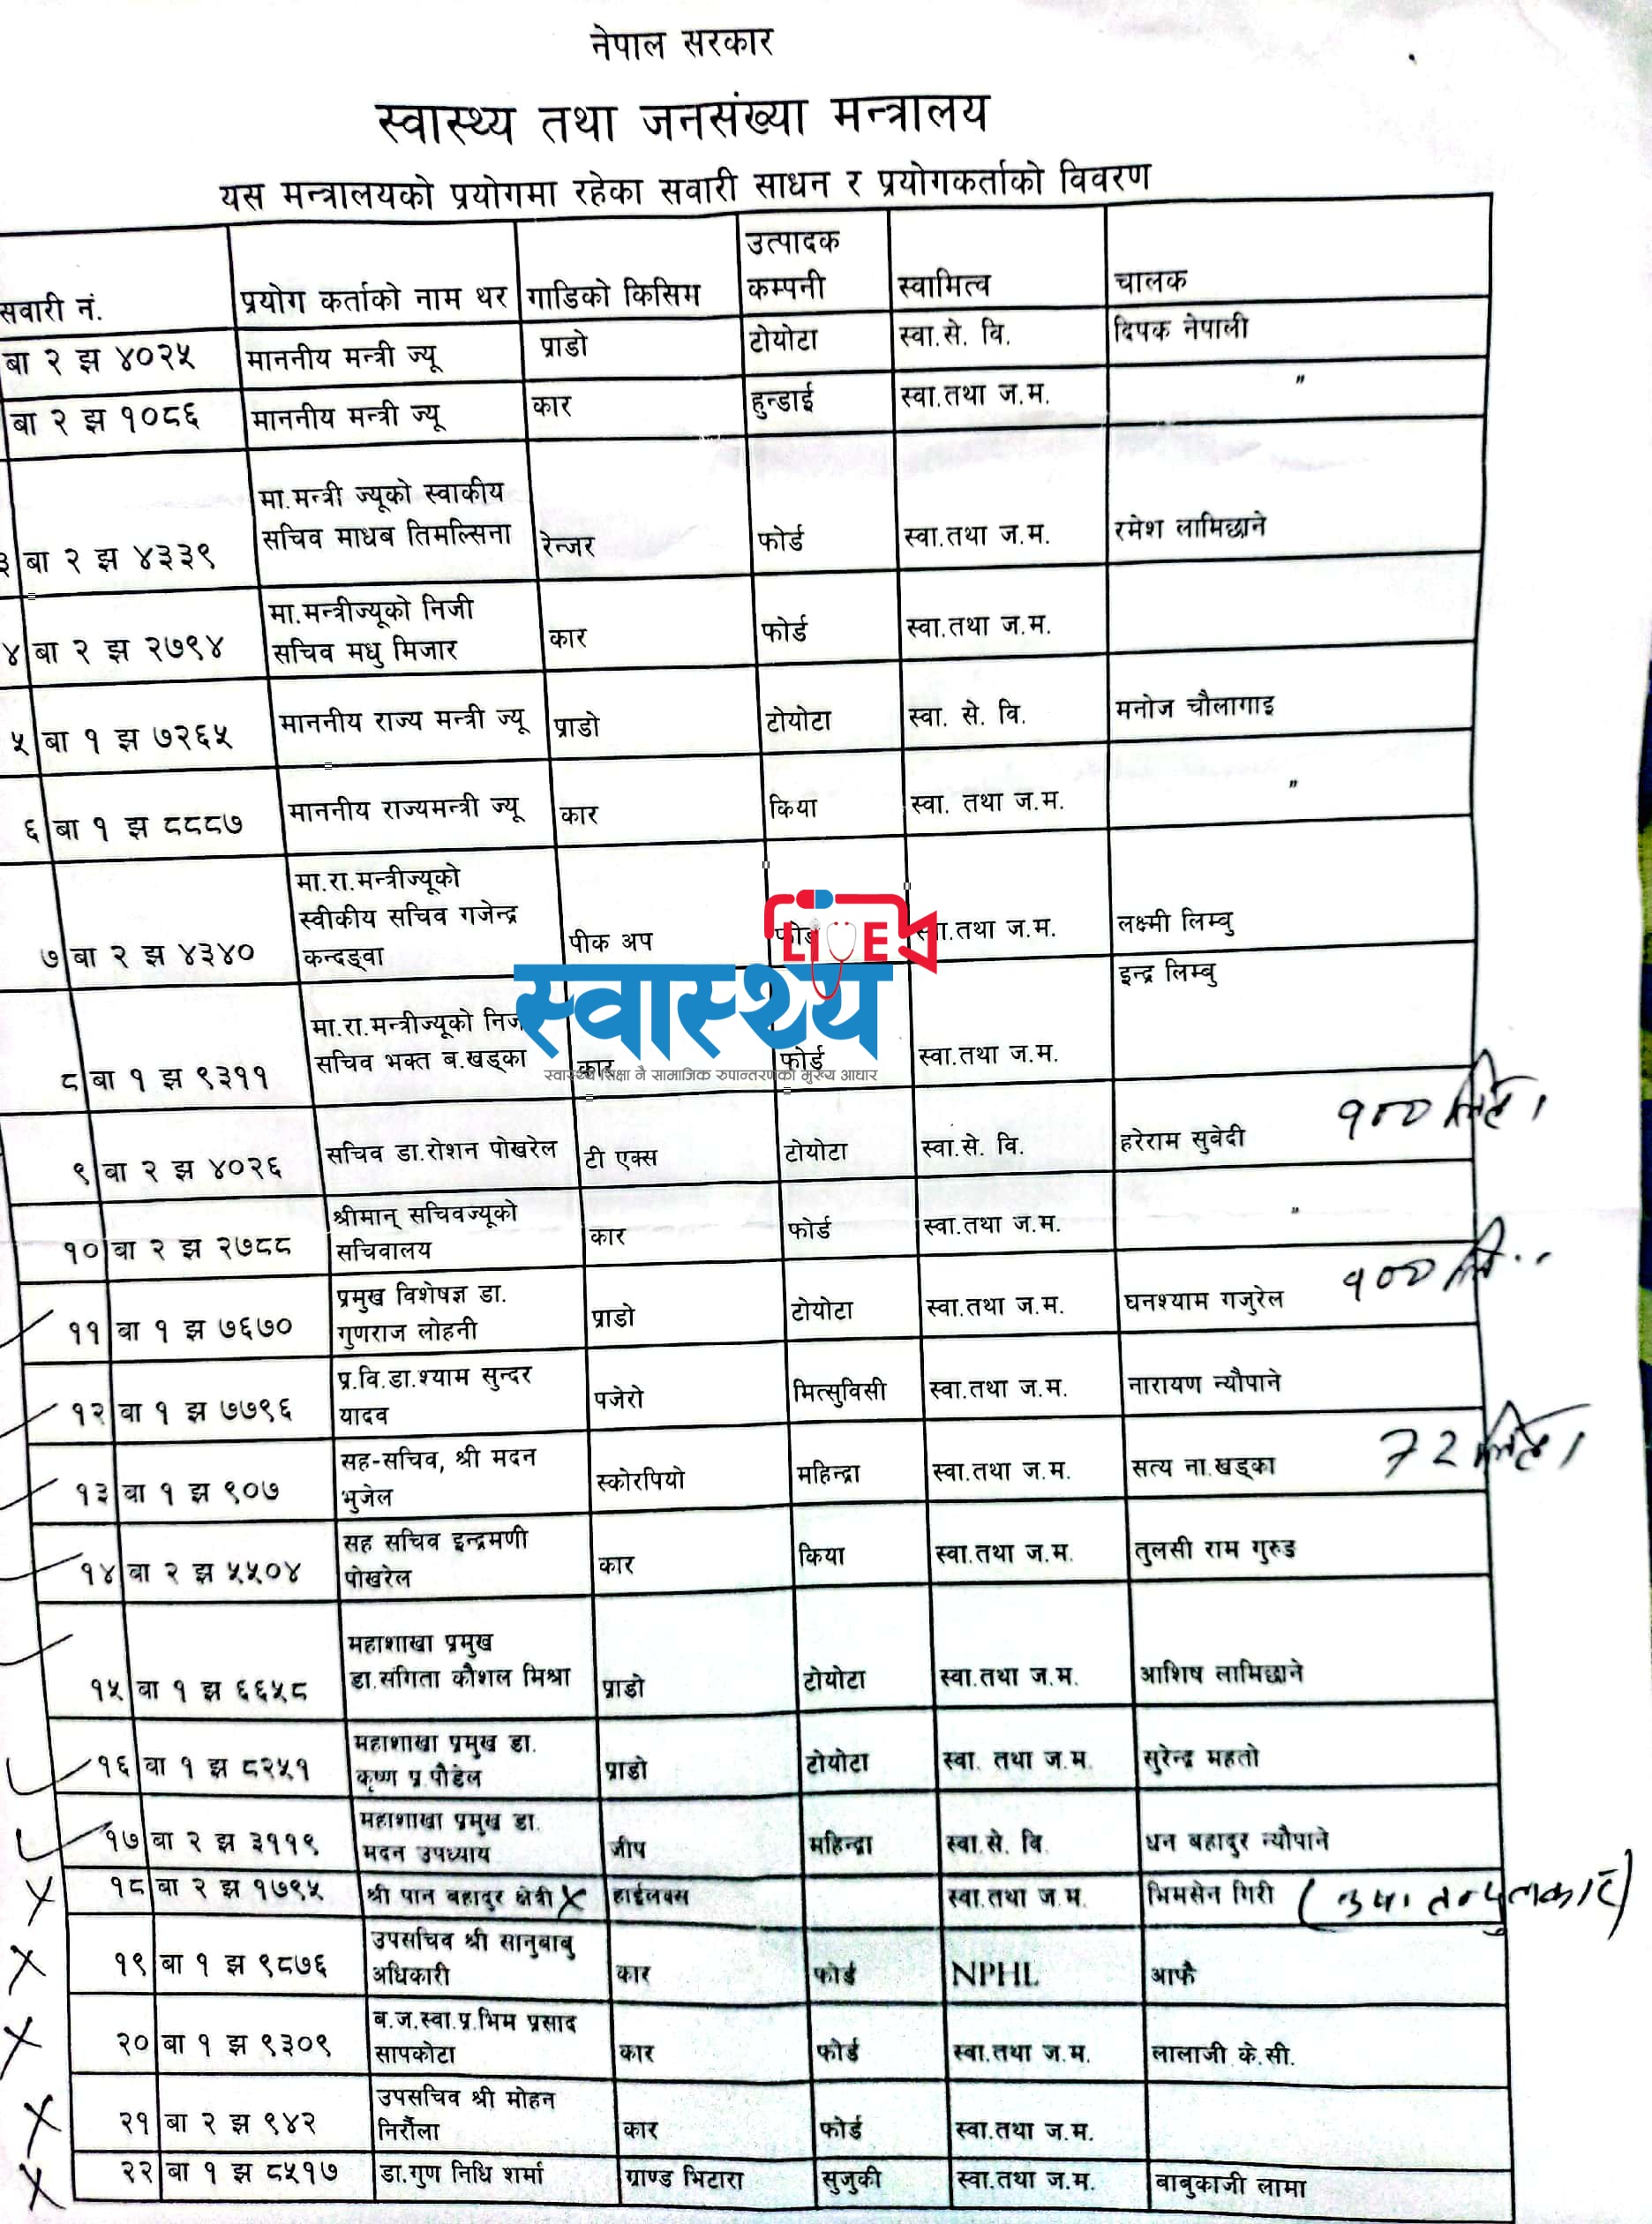 नेपाल सरकार
स्वास्थ्य तथा जनसंख्या मन्त्रालय
यस मन्त्रालयको प्रयोगमा रहेका सवारी साधन र प्रयोगकर्ताको विवरण
सवारी नं. प्रयोग कर्ताको नाम थर गाडिको किसिम उत्पादक कम्पनी स्वामित्व चालक
बा २ झ ४०२५ माननीय मन्त्री ज्यू प्राडो टोयोटा स्वा.से. वि. दिपक नेपाली
बा २ झ १०८६ माननीय मन्त्री ज्यू कार हुन्डाई स्वा.तथा ज.म. "
३ बा २ झ ४३३९ मा.मन्त्री ज्यूको स्वाकीय सचिव माधब तिमल्सिना रेन्जर फोर्ड स्वा.तथा ज.म. रमेश लामिछाने
४ बा २ झ २७९४ मा.मन्त्रीज्यूको निजी सचिव मधु मिजार कार फोर्ड स्वा.तथा ज.म.
५ बा १ झ ७२६५ माननीय राज्य मन्त्री ज्यू प्राडो टोयोटा स्वा. से. वि. मनोज चौलागाइ
६ बा १ झ ८८८७ माननीय राज्यमन्त्री ज्यू कार किया स्वा. तथा ज.म. "
७ बा २ झ ४३४० मा.रा.मन्त्रीज्यूको स्वीकीय सचिव गजेन्द्र कन्दङ्वा पीक अप फोर्ड स्वा.तथा ज.म. लक्ष्मी लिम्बु
LIVE
स्वास्थ्य
स्वास्थ्य शिक्षा नै सामाजिक रुपान्तरणको मुख्य आधार
८ बा १ झ ९३११ मा.रा.मन्त्रीज्यूको निज सचिव भक्त ब.खड्का कार फोर्ड स्वा.तथा ज.म. इन्द्र लिम्बु
९ बा २ झ ४०२६ सचिव डा.रोशन पोखरेल टी एक्स टोयोटा स्वा.से. वि. हरेराम सुवेदी १००
१० बा २ झ २७८८ श्रीमान् सचिवज्यूको सचिवालय कार फोर्ड स्वा.तथा ज.म. "
११ बा १ झ ७६७० प्रमुख विशेषज्ञ डा. गुणराज लोहनी प्राडो टोयोटा स्वा.तथा ज.म. घनश्याम गजुरेल १००
१२ बा १ झ ७७९६ प्र.वि.डा.श्याम सुन्दर यादव पजेरो मित्सुविसी स्वा.तथा ज.म. नारायण न्यौपाने
१३ बा १ झ ९०७ सह-सचिव, श्री मदन भुजेल स्कोरपियो महिन्द्रा स्वा.तथा ज.म. सत्य ना.खड्का 72
१४ बा २ झ ५५०४ सह सचिव इन्द्रमणी पोखरेल कार किया स्वा.तथा ज.म. तुलसी राम गुरुड
१५ बा १ झ ६६५८ महाशाखा प्रमुख डा.संगिता कौशल मिश्रा प्राडो टोयोटा स्वा.तथा ज.म. आशिष लामिछाने
१६ बा १ झ ८२५१ महाशाखा प्रमुख डा. कृष्ण प्र.पौडेल प्राडो टोयोटा स्वा. तथा ज.म. सुरेन्द्र महतो
१७ बा २ झ ३११९ महाशाखा प्रमुख डा. मदन उपध्याय जीप महिन्द्रा स्वा.से. वि. धन बहादुर न्यौपाने
१८ बा २ झ १७९५ श्री पान बहादुर क्षेत्री हाईलक्स स्वा.तथा ज.म. भिमसेन गिरी
१९ बा १ झ ९८७६ उपसचिव श्री सानुबाबु अधिकारी कार फोर्ड NPHL आफै
२० बा १ झ ९३०९ ब.ज.स्वा.प्र.भिम प्रसाद सापकोटा कार फोर्ड स्वा.तथा ज.म. लालाजी के.सी.
२१ बा २ झ ९४२ उपसचिव श्री मोहन निरौला कार फोर्ड स्वा.तथा ज.म.
२२ बा १ झ ८५१७ डा.गुण निधि शर्मा ग्राण्ड भिटारा सुजुकी स्वा.तथा ज.म. बाबुकाजी लामा